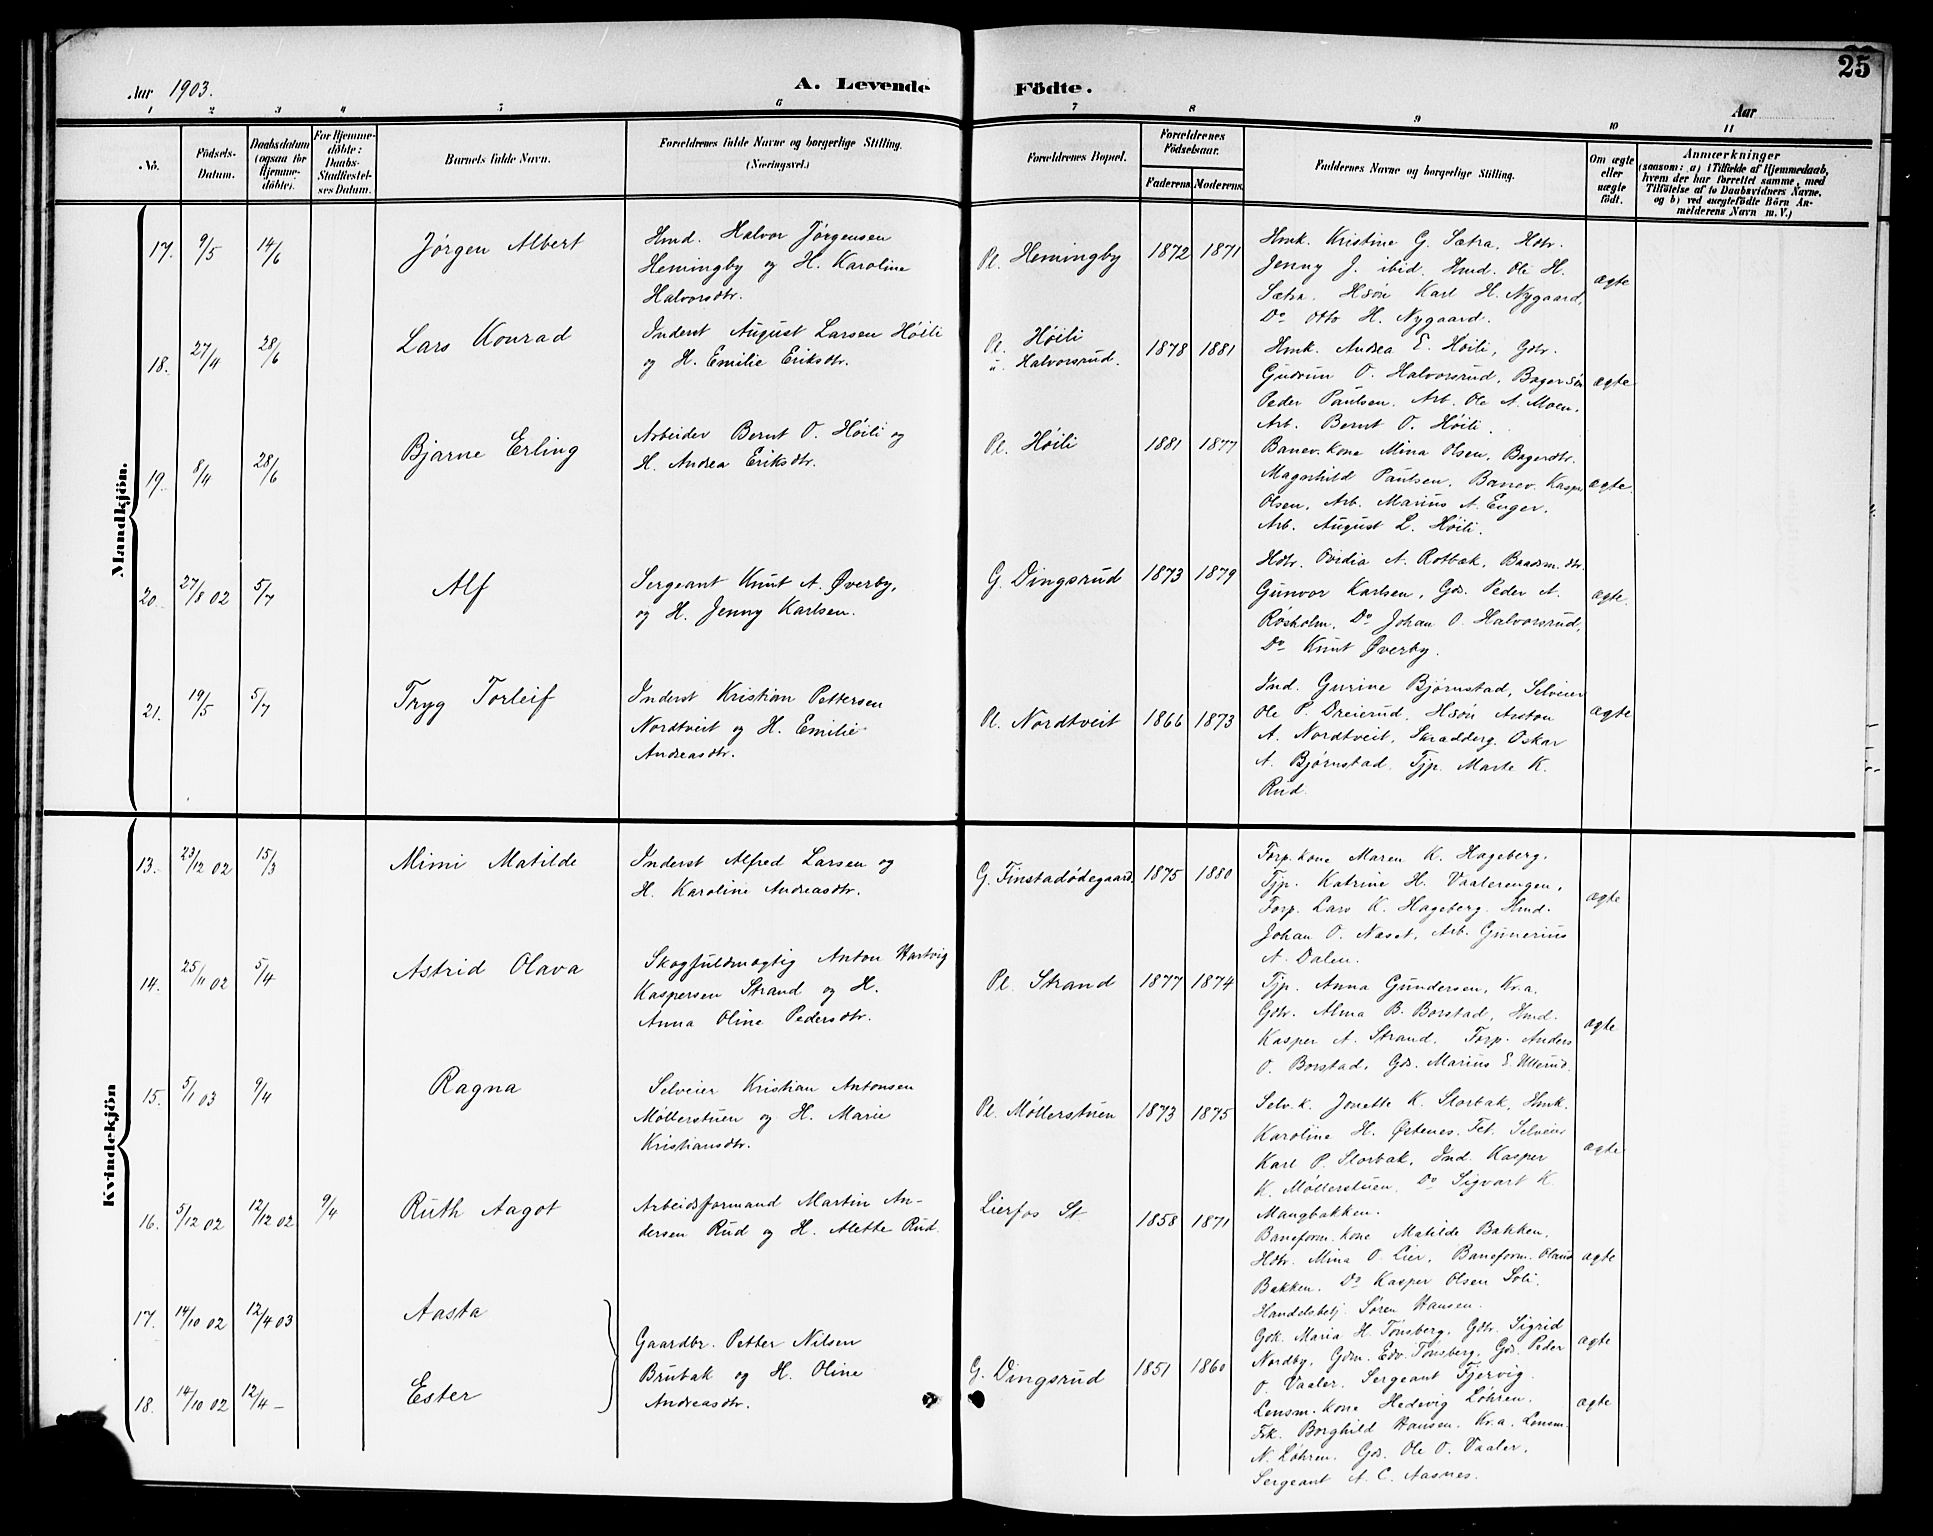 25
Aar 1903.
A. Levende
Födte.
Aar
1 2 3 4 5 6 7 8 9 10 11
No.
Födsels-
Datum.
Daabsdatum
(ogsaa for
Hjemme-
döbte).
For Hjemme-
döbte:
Daabs-
Stadfæstel-
ses Datum.
Barnets fulde Navn.
Forældrenes fulde Navne og borgerlige Stilling.
(Næringsvei.)
Forældrenes Bopæl.
Forældrenes
Födselsaar.
Faderens. Moderens.
Faddernes Navne og borgerlige Stilling.
Om ægte
eller
uægte
födt.
Anmærkninger
(saasom: a) i Tilfælde af Hjemmedaab,
hvem der har forrettet samme, med
Tilföielse af to Daabsvidners Navne,
og b) ved uægtefödte Börn An-
melderens Navn m. V.)
Mandkjön.
17. 9/5 14/6 Jørgen Albert
Hmd. Halvor Jørgensen
Hemingby og H. Karoline
Halvorsdtr.
Pl. Hemingby 1872 1871
Hmk. Kristine G. Sætra, Hdtr.
Jenny J. ibid. Hmd. Ole H.
Sætra. Hsøn Karl H. Nygaard,
Do Otto H. Nygaard.
ægte
18. 27/4 28/6 Lars Konrad
Inderst August Larsen Høili
og H. Emilie Eriksdtr.
Pl. Høili
u. Halvorsrud. 1878 1881
Hmk. Andrea E Høili, Gdtr.
Gudrun O. Halvorsrud, Bagersøn
Peder Paulsen. Arb. Ole A. Moen.
Arb. Bernt O. Høili.
ægte
19. 8/4 28/6 Bjarne Erling
Arbeider Bernt O. Høili og
H. Andrea Eriksdtr.
Pl. Høili 1881 1877
Banev. kone Mina Olsen, Bagerdtr.
Magnhild Paulsen. Banev. Kasper
Olsen, Arb. Marius A. Enger.
Arb. August L. Høili.
ægte.
20. 27/8 02 5/7 Alf
Sergeant Knut A. Øverby,
og H. Jenny Karlsen.
G. Dingsrud 1873 1879
Hdtr. Ovidia A. Rotbæk, Baadsm. dtr.
Gunvor Karlsen, Gds. Peder A.
Røsholm. Do Johan O. Halvorsrud,
Do Knut Øverby.
ægte.
21. 19/5 5/7 Tryg Torleif
Inderst Kristian Pettersen
Nordtveit og H. Emilie
Andreasdtr.
Pl. Nordtveit 1866 1873
Ind. Gurine Bjørnstad, Selveier
Ole P. Dreierud, Hsøn Anton
A. Nordtveit, Skrædderg. Oskar
A. Bjørnstad. Tjp. Marte K.
Rud.
ægte
Kvindekjön
13. 23/12 02 15/3 Mimi Matilde
Inderst Alfred Larsen og
H. Karoline Andreasdtr.
G. Finstadødegaard. 1875 1880
Forp. kone Maren K. Hageberg.
Tjp. Katrine H. Vaalerengen,
Forp. Lars K. Hageberg. Hmd.
Johan O. Næset, Arb. Gunerius
A. Dalen.
ægte
14. 25/11 02 5/4 Astrid Olava
Skogfuldmægtig Anton Hartvig
Kaspersen Strand og H.
Anna Oline Pedersdtr.
Pl. Strand 1877 1874
Tjp. Anna Gundersen, Kr.a.
Gdtr. Alma B. Borstad, Hmd.
Kasper A. Strand. Forp. Anders
O. Borstad, Gds. Marius E. Ullerud.
ægte
15. 5/1 03 9/4 Ragna
Selveier Kristian Antonsen
Møllerstuen og H. Marie
Kristiansdtr.
Pl. Møllerstuen 1873 1875
Selv. k. Jonette K. Storbæk, Hmk.
Karoline H. Østenes. Fet. Selveier
Karl P. Storbæk, Ind. Kasper
K. Møllerstuen, Do Sigvart K.
Mangbakken.
ægte
16. 5/12 02 12/12 02 9/4 Ruth Aagot
Arbeidsformand Martin An-
dersen Rud og H. Alette Rud.
Lierfos St. 1858 1871
Baneform. kone Matilde Bakken.
Hdtr. Mina O. Lier, Baneform. Olaus
Bakken. Do Kasper Olsen Soli.
Handelsbetj. Søren Hansen.
ægte
17. 14/10 02 12/4 03 Aasta
Gaardbr. Petter Nilsen
Brubak og H. Oline
Andreasdtr.
G. Dingsrud 1851 1860
Gdk. Maria H. Tonsberg, Gdtr. Sigrid
Nordby, Gdm. Edv. Tonsberg, Gds. Peder
O. Vaaler. Sergeant Tjervig.
ægte
18. 14/10 02 12/4 – Ester
Lensm. kone Hedevig Løhren.
Frk. Borghild Hansen. Kr.a. Lensm.
N. Løhren. Gds. Ole O. Vaaler,
Sergeant A. C. Aasnes.
ægte